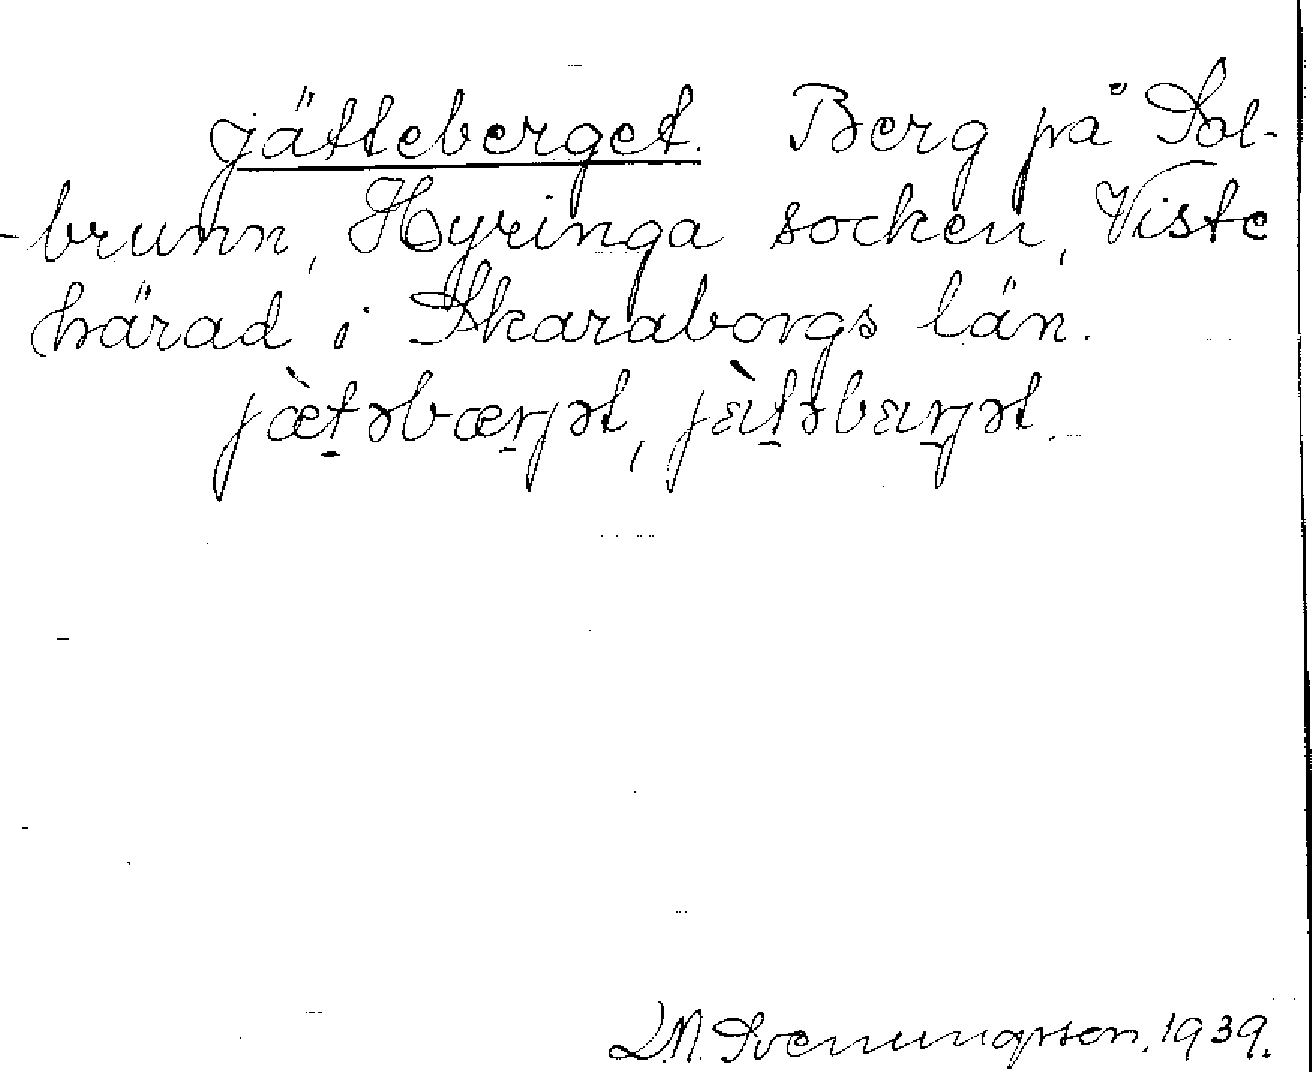 jätteberget. Berg på Sol-
-brunn, Hyringa socken, Viste
härad i Skaraborgs län.
jæ̀t̠əbær̠jət, jàt̠əbar̠jət.
L.M. Svenungsson. 1939.